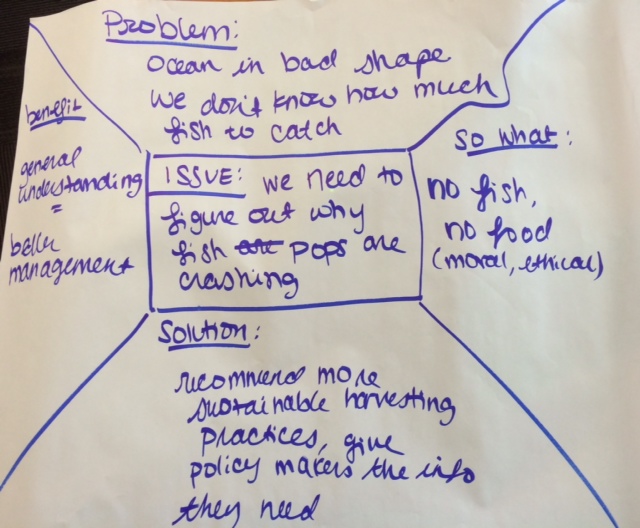 Problem:
Ocean in bad shape
we don't know how much
fish to catch
benefit
general
understanding
=
better
management
ISSUE: we need to
figure out why
fish are pops are
crashing
SO what:
no fish,
no food
(moral, ethical)
Solution:
recommend more
sustainable harvesting
practices, give
policy makers the info
they need